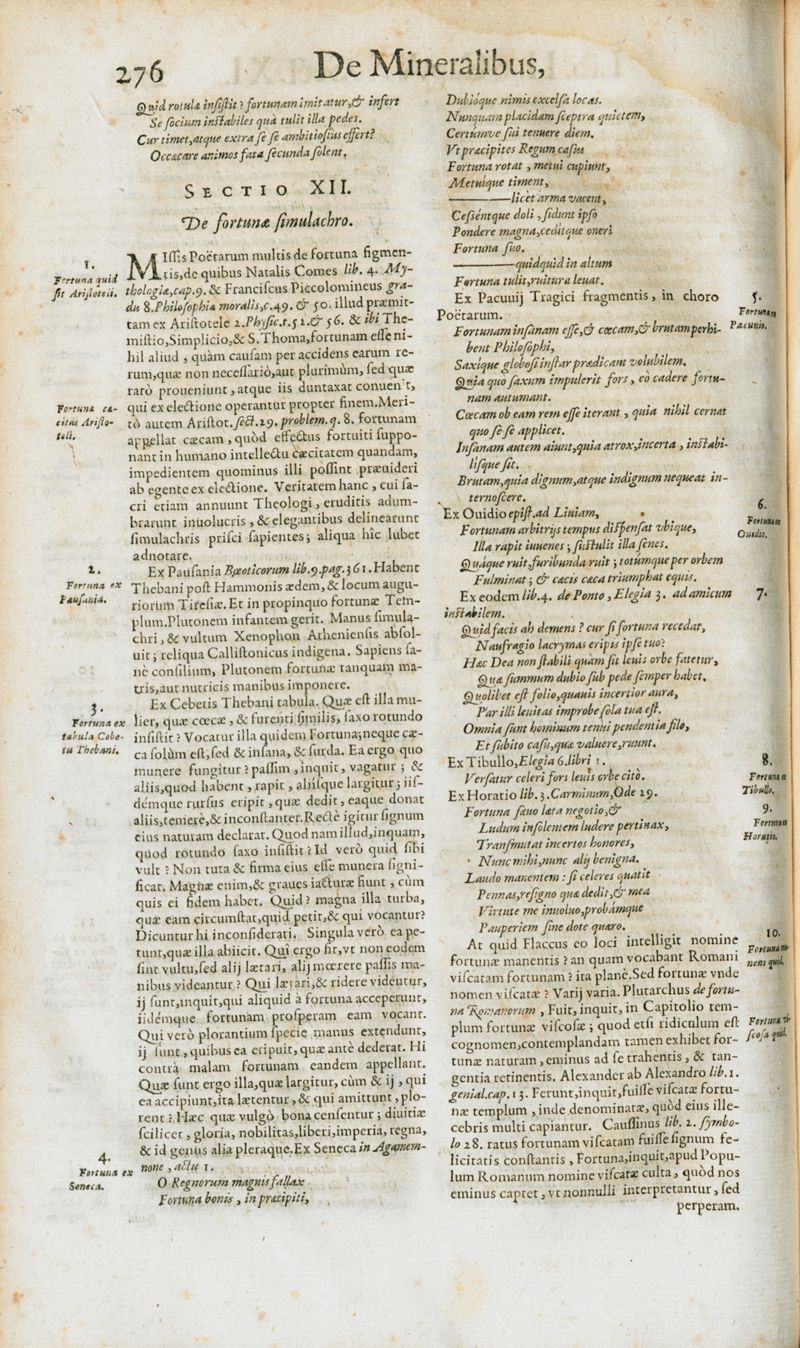 276
De Mineralibus,
Quid rotulæ insistit? fortunam imitatur,& infert
Se socium instabiles quà tulit illa pedes.
Cur timet,atque extra se se ambitiosius effert?
Occæcare animos fata secunda solent.
SECTIO XII.
De fortunæ simulachro.
1.
Fortuna quid
sit Aristoteli.
MIssis Poëtarum multis de fortuna figmen-
tis,de quibus Natalis Comes lib. 4. My-
thologiæ,cap.9. & Franciscus Piccolomineus gra-
du 8.Philosophiæ moralis,c.49. & 50. illud præmit-
tam ex Aristotele 2.Physic.t.52.& 56. & ibi The-
mistio,Simplicio,& S.Thoma,fortunam esse ni-
hil aliud , quàm causam per accidens earum re-
rum,quæ non necessariò,aut plurimùm, sed quæ
rarò proueniunt ,atque iis duntaxat conuenit,
Fortuna cæ-
citas Aristo-
teli.
qui ex electione operantur propter finem.Meri-
tò autem Aristot.sect.29. problem.q. 8. fortunam
appellat cæcam , quòd effectus fortuiti suppo-
nant in humano intellectu cæcitatem quandam,
impedientem quominus illi possint præuideri
ab egente ex electione. Veritatem hanc , cui sa-
cri etiam annuunt Theologi , eruditis adum-
brarunt inuolucris , & elegantibus delinearunt
simulachris prisci sapientes; aliqua hîc lubet
adnotare.
2.
Fortuna ex
Pausania.
Ex Pausania Bæoticorum lib.9.pag.361.Habent
Thebani post Hammonis ædem,& locum augu-
riorum Tiresiæ.Et in propinquo fortunæ Tem-
plum.Plutonem infantem gerit. Manus simula-
chri , & vultum Xenophon Atheniensis absol-
uit; reliqua Callistonicus indigena. Sapiens sa-
nè consilium, Plutonem fortunæ tanquam ma-
tris,aut nutricis manibus imponere.
3.
Fortuna ex
tabula Cebe-
tis Thebani.
Ex Cebetis Thebani tabula. Quæ est illa mu-
lier, quæ cœcæ , & furenti similis, saxo rotundo
insistit ? Vocatur illa quidem Fortuna;neque cæ-
ca solùm est,sed & insana, & surda. Ea ergo quo
munere fungitur ? passim , inquit, vagatur ; &
aliis,quod habent , rapit , aliisque largitur ; iis-
démque rursus eripit , quæ dedit , eaque donat
aliis,temerè,& inconstanter.Rectè igitur signum
eius naturam declarat. Quod nam illud,inquam,
quod rotundo saxo insistit ? Id verò quid sibi
vult ? Non tuta & firma eius esse munera signi-
ficat. Magnæ enim,& graues iacturæ fiunt , cùm
quis ei fidem habet. Quid? magna illa turba,
quæ eam circumstat,quid petit,& qui vocantur?
Dicuntur hi inconsiderati. Singula verò ea pe-
tunt,quæ illa abiicit. Qui ergo fit,vt non eodem
sint vultu,sed alij lætari, alij mœrere passis ma-
nibus videantur ? Qui lætari,& ridere videntur,
ij sunt,inquit,qui aliquid à fortuna acceperunt,
iidémque fortunam prosperam eam vocant.
Qui verò plorantium specie manus extendunt,
ij sunt , quibus ea eripuit, quæ antè dederat. Hi
contrà malam fortunam eandem appellant.
Quæ sunt ergo illa,quæ largitur, cùm & ij , qui
ea accipiunt,ita lætentur , & qui amittunt , plo-
rent ? Hæc quæ vulgò bona censentur ; diuitiæ
scilicet , gloria, nobilitas,liberi,imperia, regna,
& id genus alia pleraque.Ex Seneca in Agamem-
none , actu 1.
4.
Fortuna ex
Seneca.
O Regnorum magnis fallax
Fortuna bonis , in præcipiti,
Dubióque nimis excelsa locas.
Nunquam placidam sceptra quietem,
Certúmve sui tenuere diem.
Vt præcipites Regum casus
Fortuna rotat , metui cupiunt,
Metuique timent,
————licet arma vacent,
Cessentque doli , sidunt ipso
Pondere magna,ceditque oneri
Fortuna suo.
————quidquid in altum
Fortuna tulit,ruitura leuat.
Ex Pacuuij Tragici fragmentis, in choro
Poëtarum.
5.
Fortuna
Pacunis.
Fortunam insanam esse,& cæcam,& brutam perhi-
bent Philosophi,
Saxique globosi instar prædicant volubilem.
Quia quo saxum impulerit fors , eò cadere fortu-
nam autumant.
Cæcam ob eam rem esse iterant , quia nihil cernat
quo se se applicet.
Insanam autem aiunt,quia atrox,incerta , instabi-
lisque sit.
Brutam,quia dignum,atque indignum nequeat in-
ternoscere.
6.
Fortuna
Ouidii.
Ex Ouidio epist.ad Liuiam,
Fortunam arbitrijs tempus dispensat vbique,
Illa rapit iuuenes ; sustulit illa senes.
Quáque ruit,furibunda ruit ; totúmque per orbem
Fulminat ; & cæcis cæca triumphat equis.
7.
Ex eodem lib.4. de Ponto , Elegia 3. ad amicum
instabilem.
Quid facis ah demens ? cur si fortuna recedat,
Naufragio lacrymas eripis ipse tuo?
Hæc Dea non stabili quàm sit leuis orbe fatetur,
Quæ summum dubio sub pede semper habet.
Quolibet est folio,quauis incertior aura,
Par illi leuitas improbe sola tua est.
Omnia sunt hominum tenui pendentia filo,
Et subito casu,quæ valuere,ruunt.
8.
Fortuna
Tibullo.
Ex Tibullo,Elegia 6.libri 1.
Versatur celeri fors leuis orbe citò.
9.
Fortuna
Horatis.
Ex Horatio lib.3.Carminum,Ode 29.
Fortuna sæuo læta negotio,&
Ludum insolentem ludere pertinax,
Transmutat incertos honores,
Nunc mihi,nunc alij benigna.
Laudo manentem : si celeres quatit
Pennas,resigno quæ dedit,& mea
Virtute me inuoluo,probámque
Pauperiem sine dote quæro.
10.
Fortuna ma-
nens quid.
At quid Flaccus eo loci intelligit nomine
fortunæ manentis ? an quam vocabant Romani
viscatam fortunam ? ita planè.Sed fortunæ vnde
nomen viscatæ ? Varij varia. Plutarchus de fortu-
na Romanorum , Fuit, inquit, in Capitolio tem-
Fortuna vi-
scosa quid.
plum fortunæ viscosæ ; quod etsi ridiculum est
cognomen,contemplandam tamen exhibet for-
tunæ naturam , eminus ad se trahentis , & tan-
gentia retinentis. Alexander ab Alexandro lib.1.
genial.cap.13. Ferunt,inquit,fuisse viscatæ fortu-
næ templum , inde denominatæ, quòd eius ille-
cebris multi capiantur. Caussinus lib. 2. symbo-
lo 28. ratus fortunam viscatam fuisse signum fe-
licitatis constantis , Fortuna,inquit,apud Popu-
lum Romanum nomine viscatæ culta , quòd nos
eminus captet , vt nonnulli interpretantur, sed
perperam.